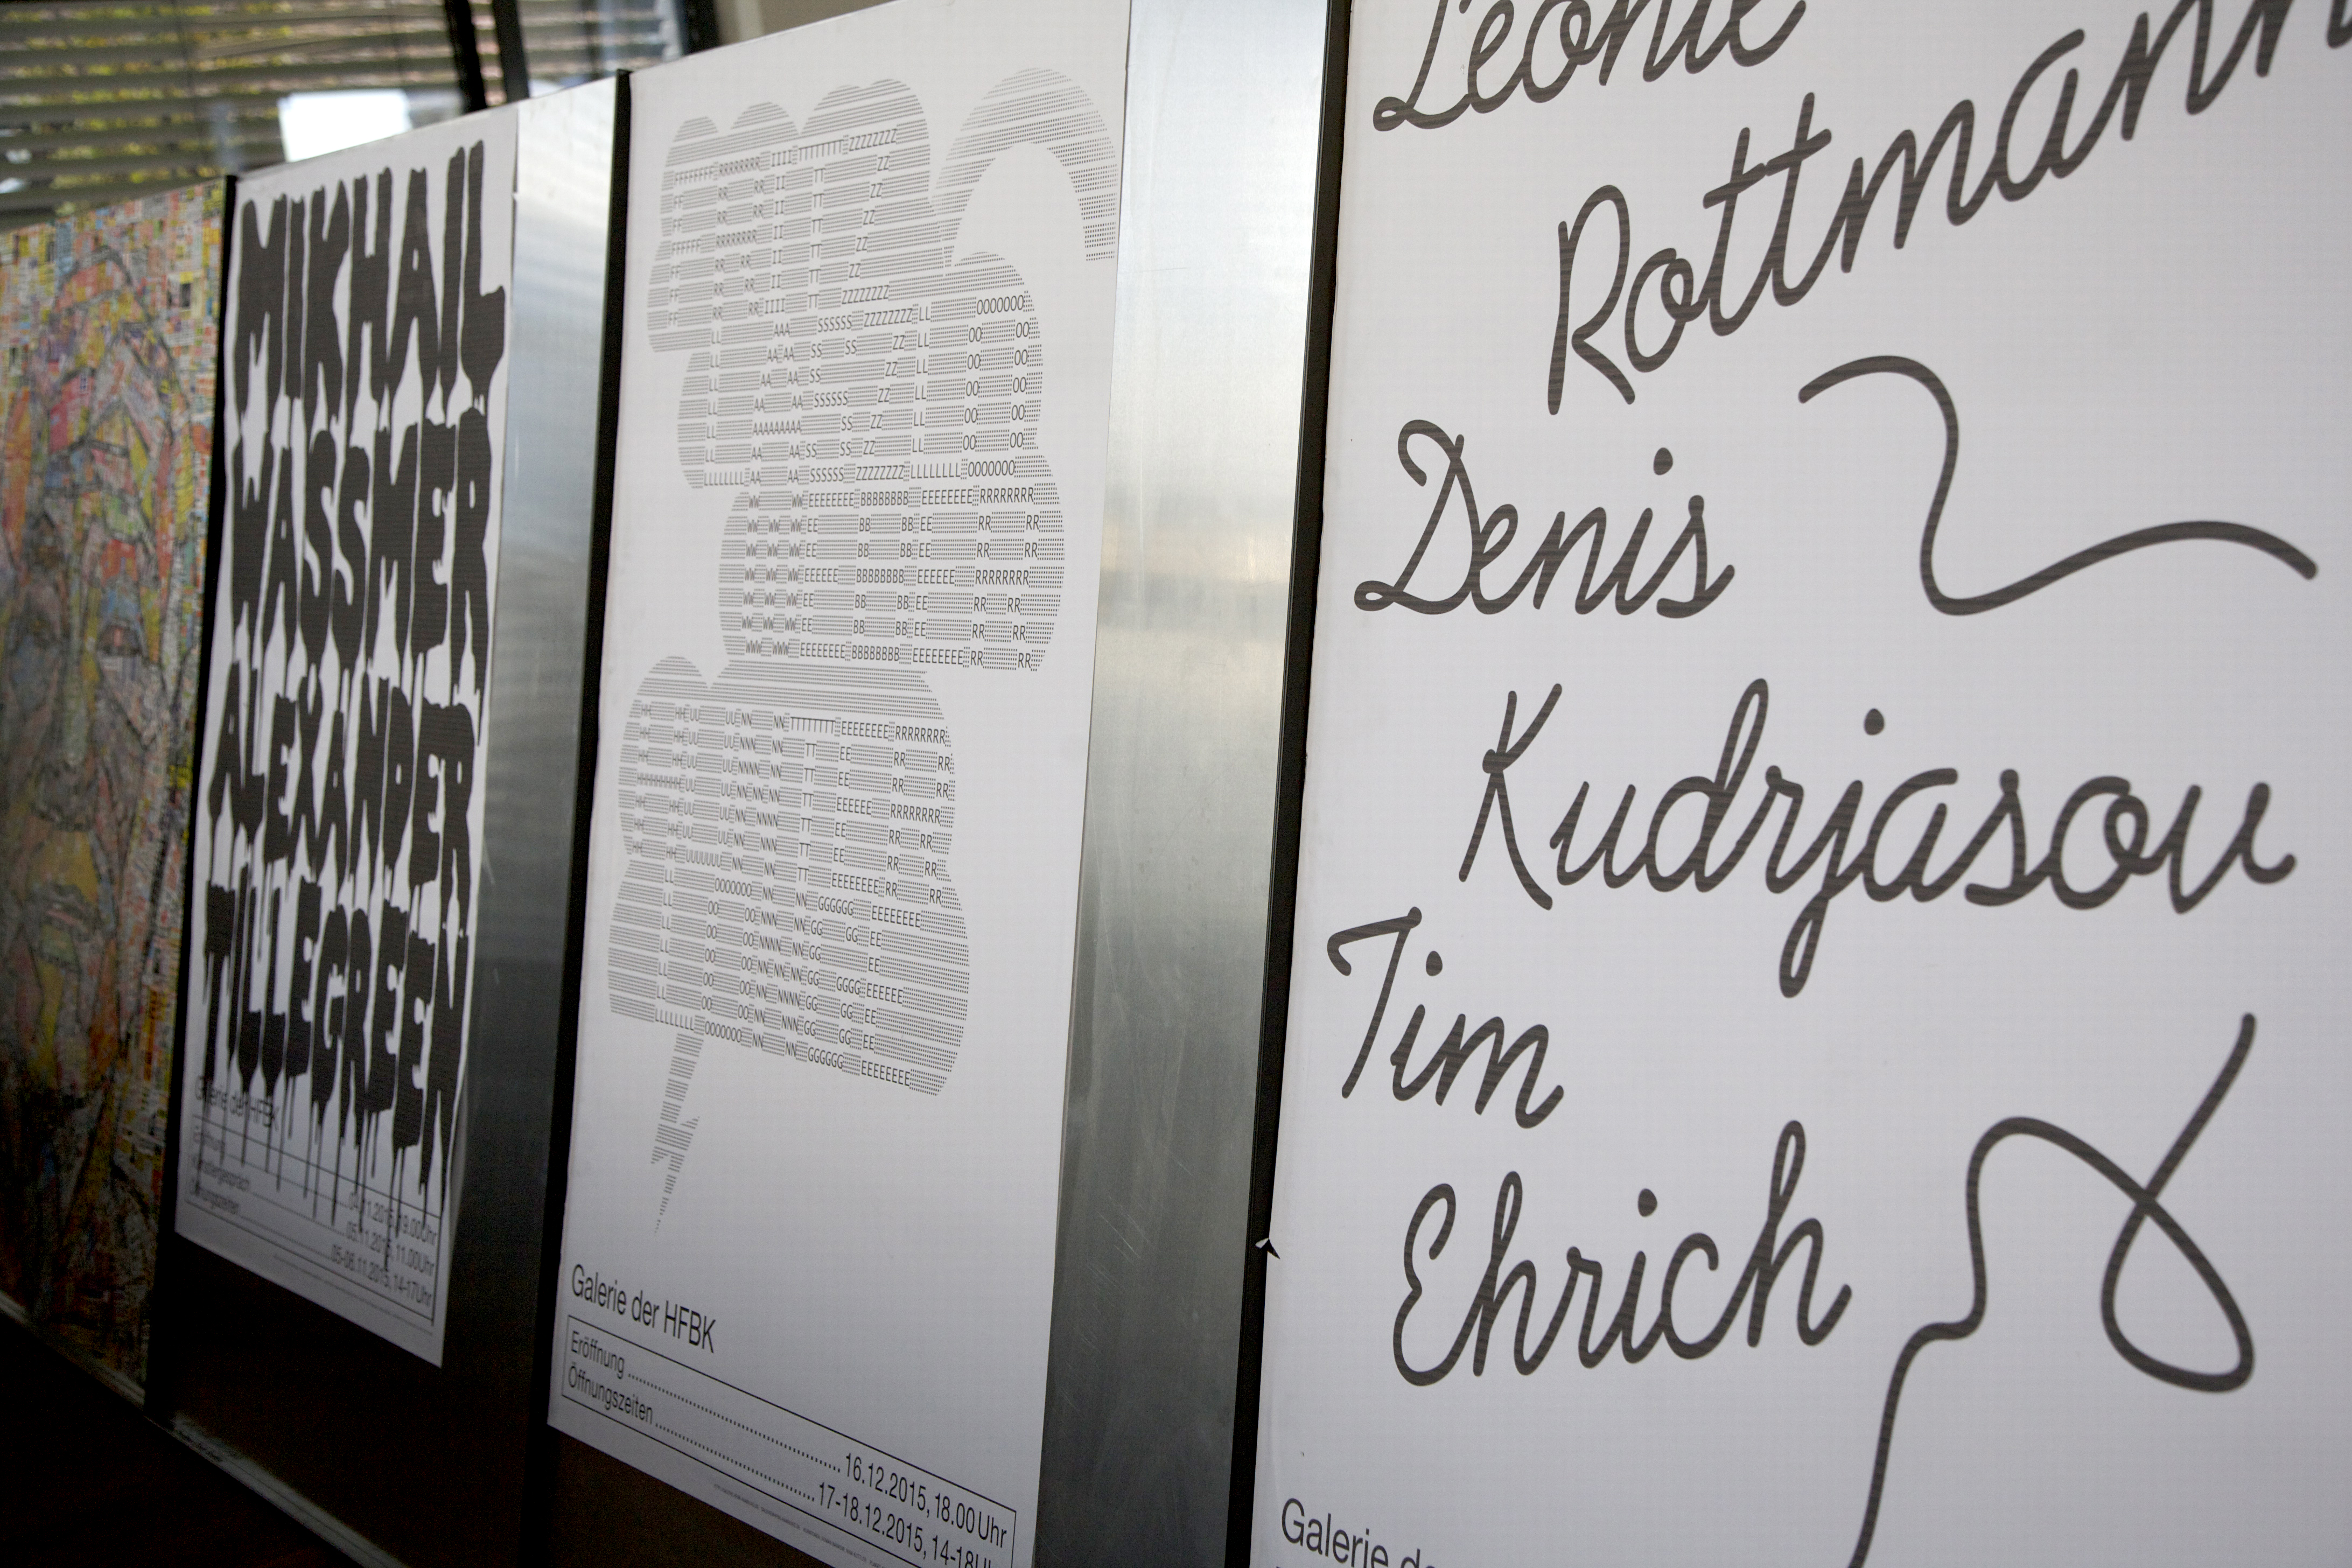 MIKHAIL
WASSMER
ALEXANDER
TILLEGREEN
Galerie der HFBK
Eröffnung 04.11.2015, 19.00Uhr
Künstlergespräch 05.11.2015, 11.00Uhr
Öffnungszeiten 05-06.11.2015, 14-17Uhr
FRITZ
LASZLO
WEBER
HUNTER
LONGE
Galerie der HFBK
Eröffnung 16.12.2015, 18.00 Uhr
Öffnungszeiten 17-18.12.2015, 14-18U
Leonie
Rottmann
Denis
Kudrjasov
Tim
Ehrich
Galerie de